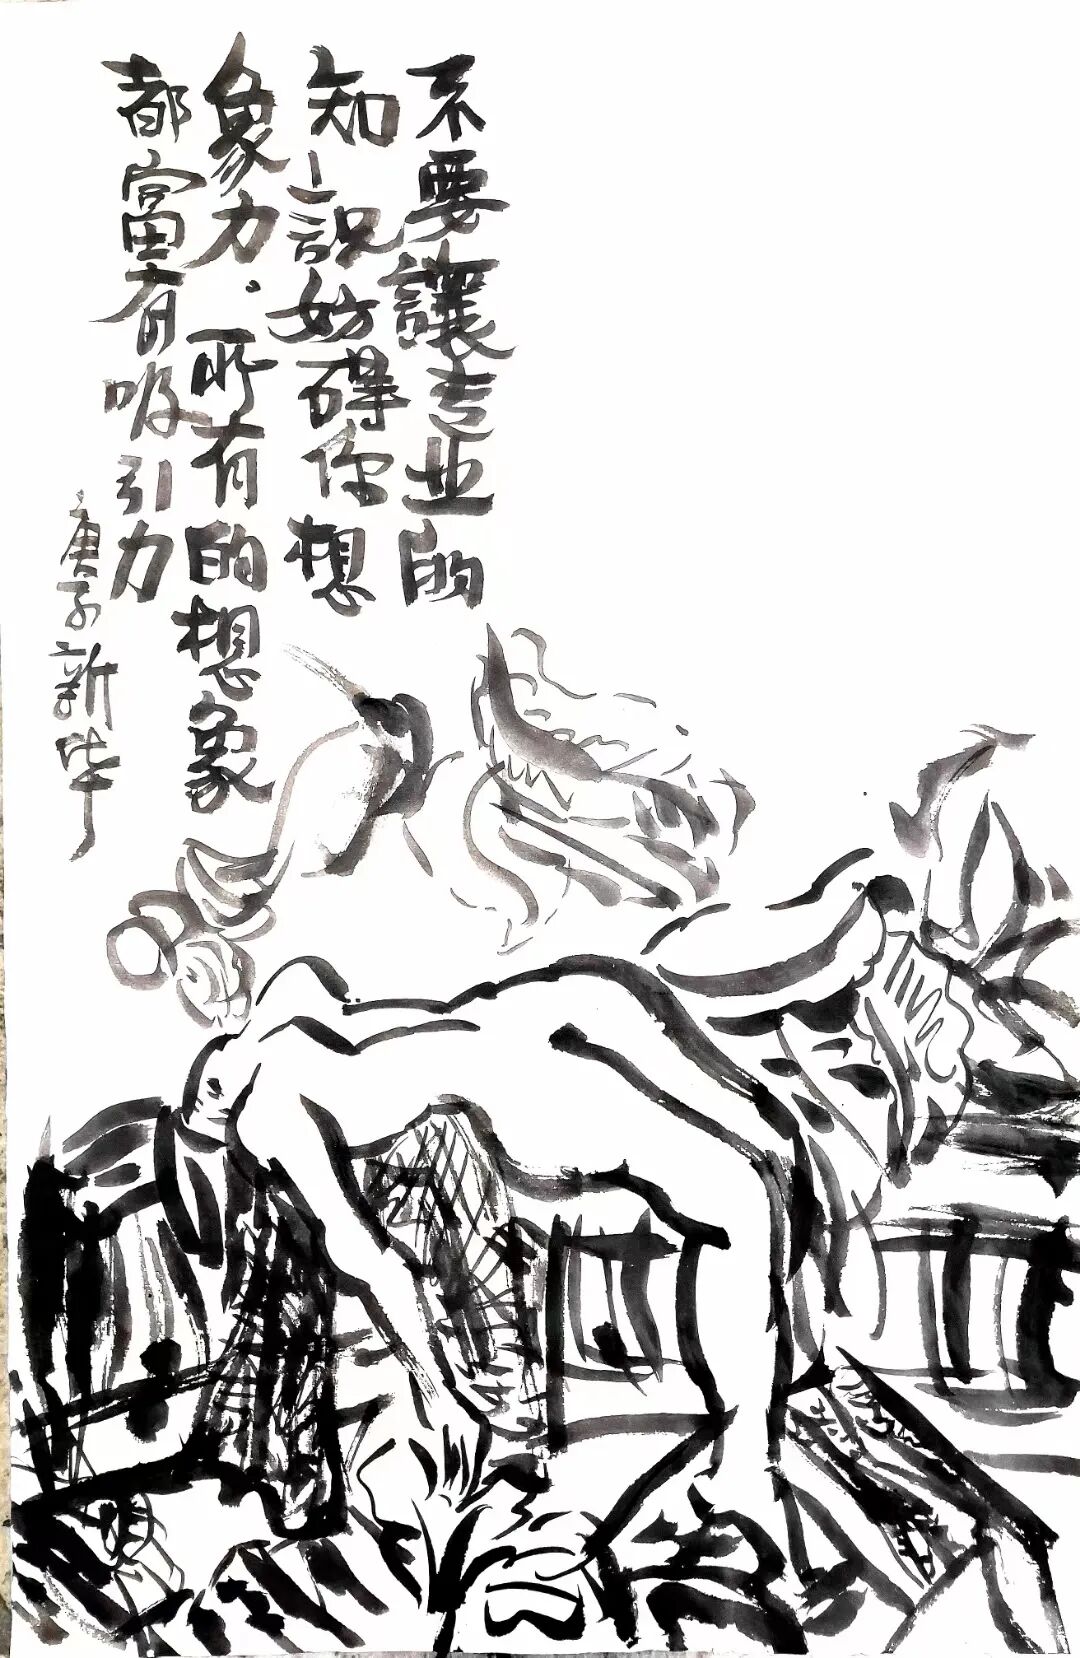 不要讓专业的
知识妨碍你想
象力．所有的想象
都富有吸引力
庚子新华